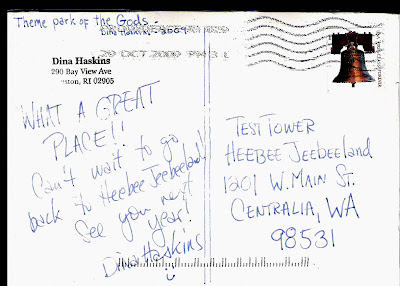 Theme park of the Gods -
Dina Haskins - 2009
29 OCT 2009 PM 3 L
Dina Haskins
290 Bay View Ave
RI 02905
WHAT A GREAT
PLACE!!
Can't wait to go
back to Heebee Jeebeeland!
See you next
year!
Dina Haskins
TEST TOWER
HEEBEE JEEBEELAND
1201 W. MAIN ST.
CENTRALIA, WA
98531